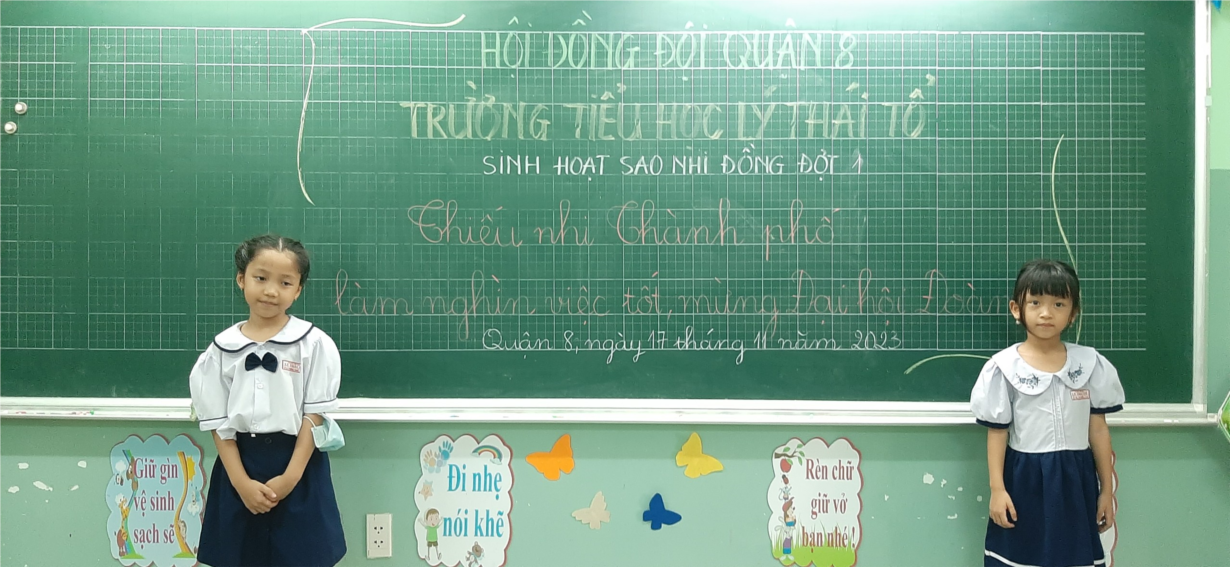 HỘI ĐỒNG ĐỘI QUẬN 8
TRƯỜNG TIỂU HỌC LÝ THÁI TỔ
SINH HOẠT SAO NHI ĐỒNG ĐỢT 1
Thiếu nhi Thành phố
làm nghìn việc tốt, mừng Đại hội Đoàn
Quận 8, ngày 17 tháng 11 năm 2023
Giữ gìn
vệ sinh
sạch sẽ
Đi nhẹ
nói khẽ
Rèn chữ
giữ vở
bạn nhé!